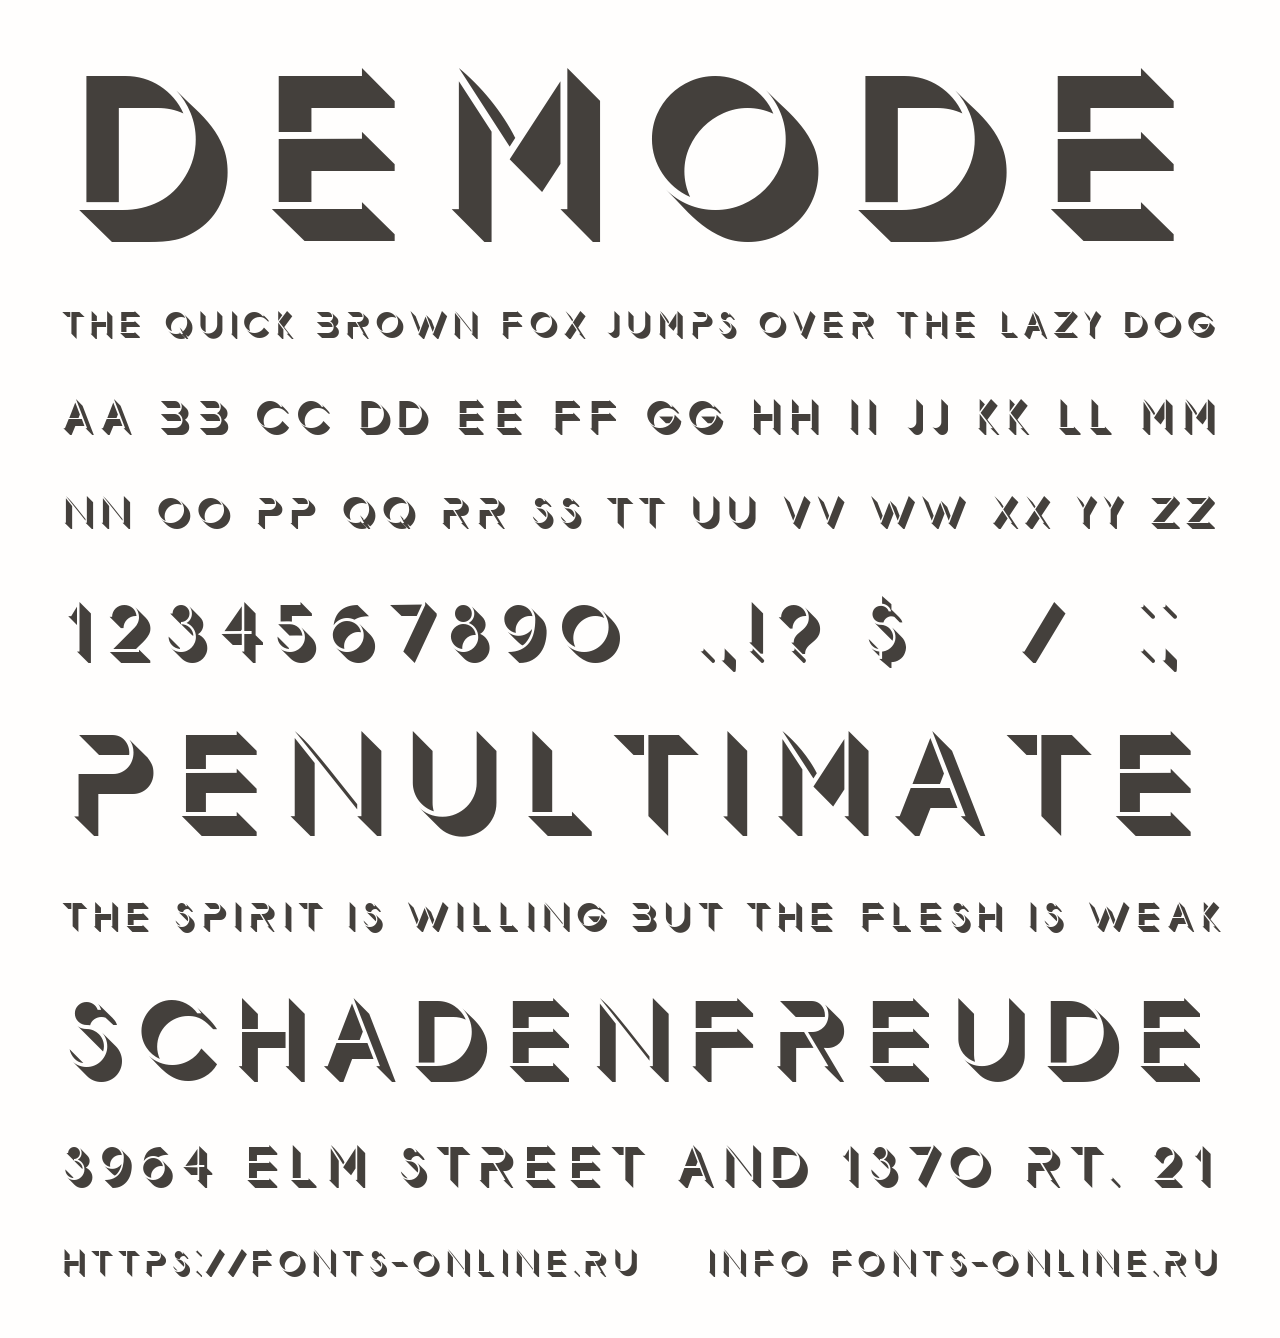 DEMODE
THE QUICK BROWN FOX JUMPS OVER THE LAZY DOG
AA BB CC DD EE FF GG HH II JJ KK LL MM
NN OO PP QQ RR SS TT UU VV WW XX YY ZZ
1234567890 .,!? $ / :;
PENULTIMATE
THE SPIRIT IS WILLING BUT THE FLESH IS WEAK
SCHADENFREUDE
3964 ELM STREET AND 1370 RT. 21
HTTPS://FONTS-ONLINE.RU INFO FONTS-ONLINE.RU